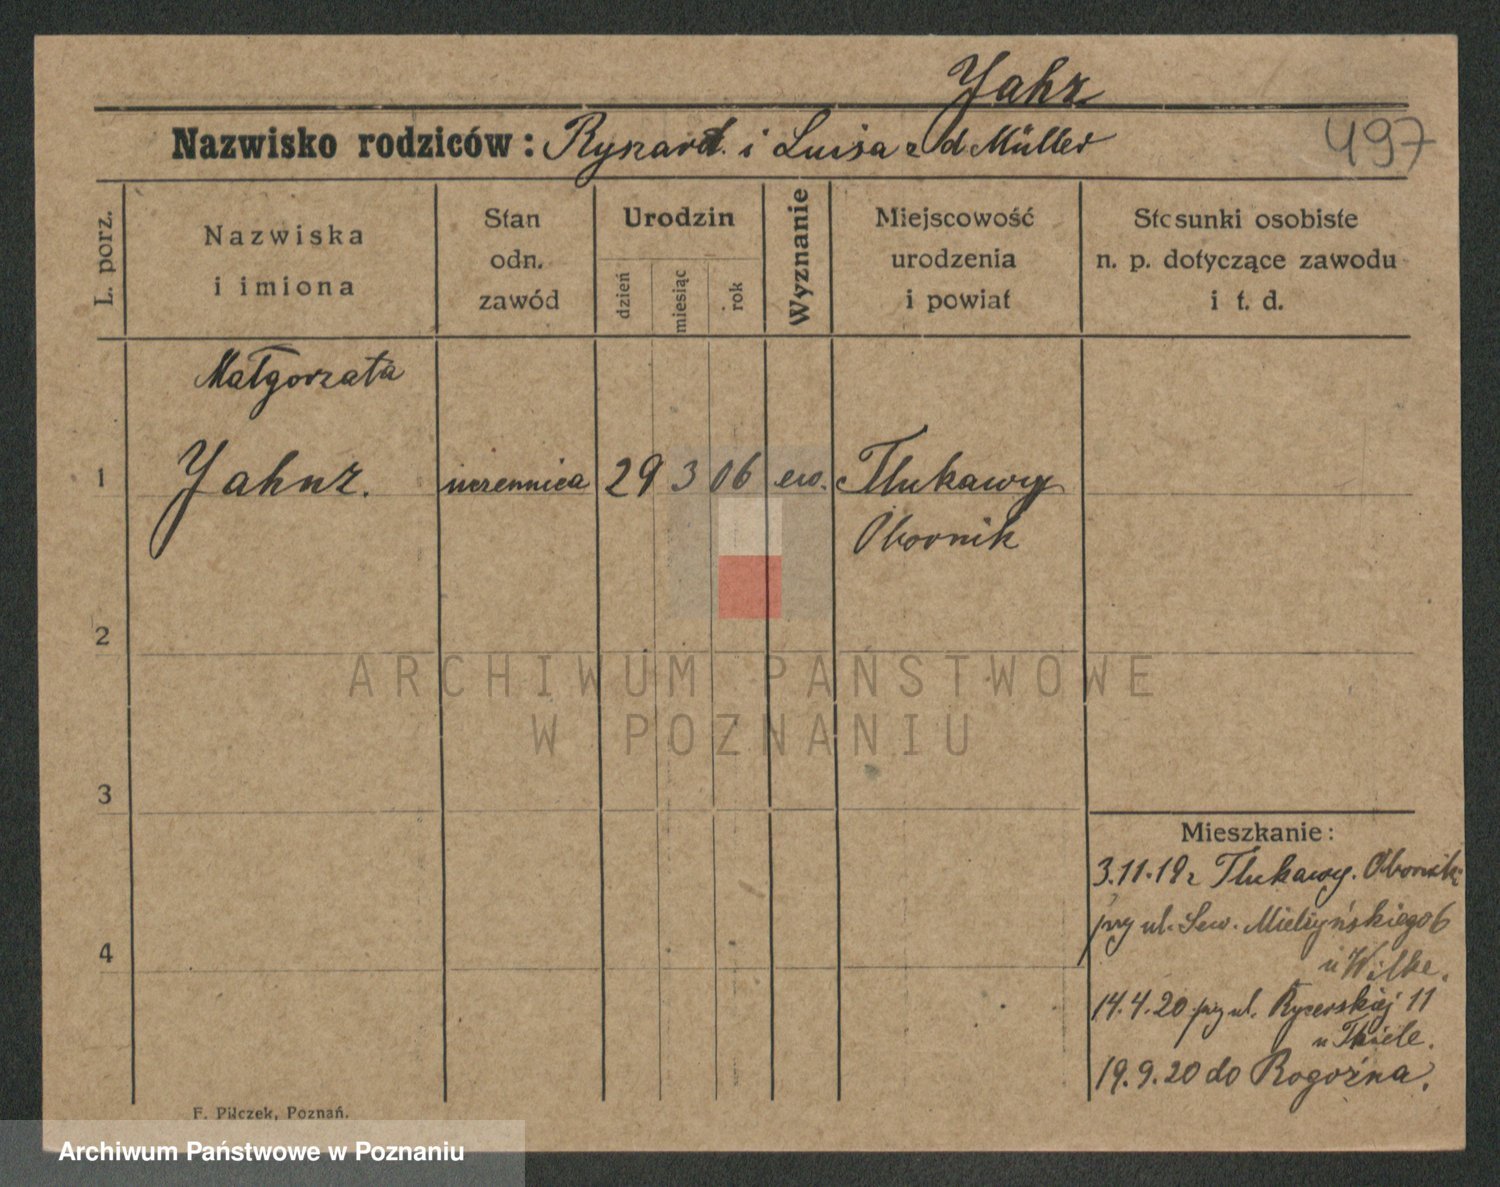 Yahz
Nazwisko rodziców: Ryszard i Luisa zd Müller
497
L. porz.
Nazwiska
i imiona
Stan
odn.
zawód
Urodzin
dzień
miesiąc
rok
Wyznanie
Miejscowość
urodzenia
i powiat
Stosunki osobiste
n. p. dotyczące zawodu
i t. d.
Małgorzata
1 Yahnz. uczennica 29 3 06 ew. Tlukawy
Obornik
2
ARCHIWUM PAŃSTWOWE
W POZNANIU
3
Mieszkanie:
3.11.19 z Tlukawy. Obornik
przy ul. Sew. Mielżyńskiego 6
u Wilke.
4
14.4.20 przy ul. Rycerskiej 11
u Thiele.
19.9.20 do Rogoźna.
F. Pilczek, Poznań.
Archiwum Państwowe w Poznaniu